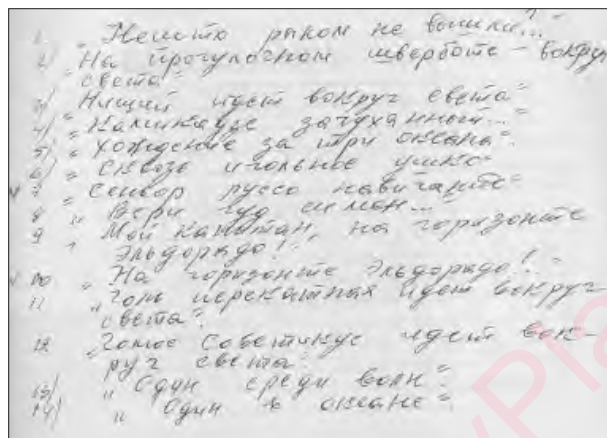 1. „Нешто рыком не вышли..."
2) „На прогулочном швертботе – вокруг
света"
3) „Нищий идет вокруг света"
4) „Калики где зачуханный..."
5) „Хождение за три океана".
6) „Сквозь игольное ушко"
v 7 „Сеньор руссо навиганте"
8 „Вери гуд си мен..."
9 „Мой капитан, на горизонте
Эльдорадо!"
v 10 „На горизонте Эльдорадо!"
11 „Голь перекатная идет вокруг
света".
12 „Гомос советикус идет вок-
руг света"
13) „Один среди волн".
14) „Один в океане".